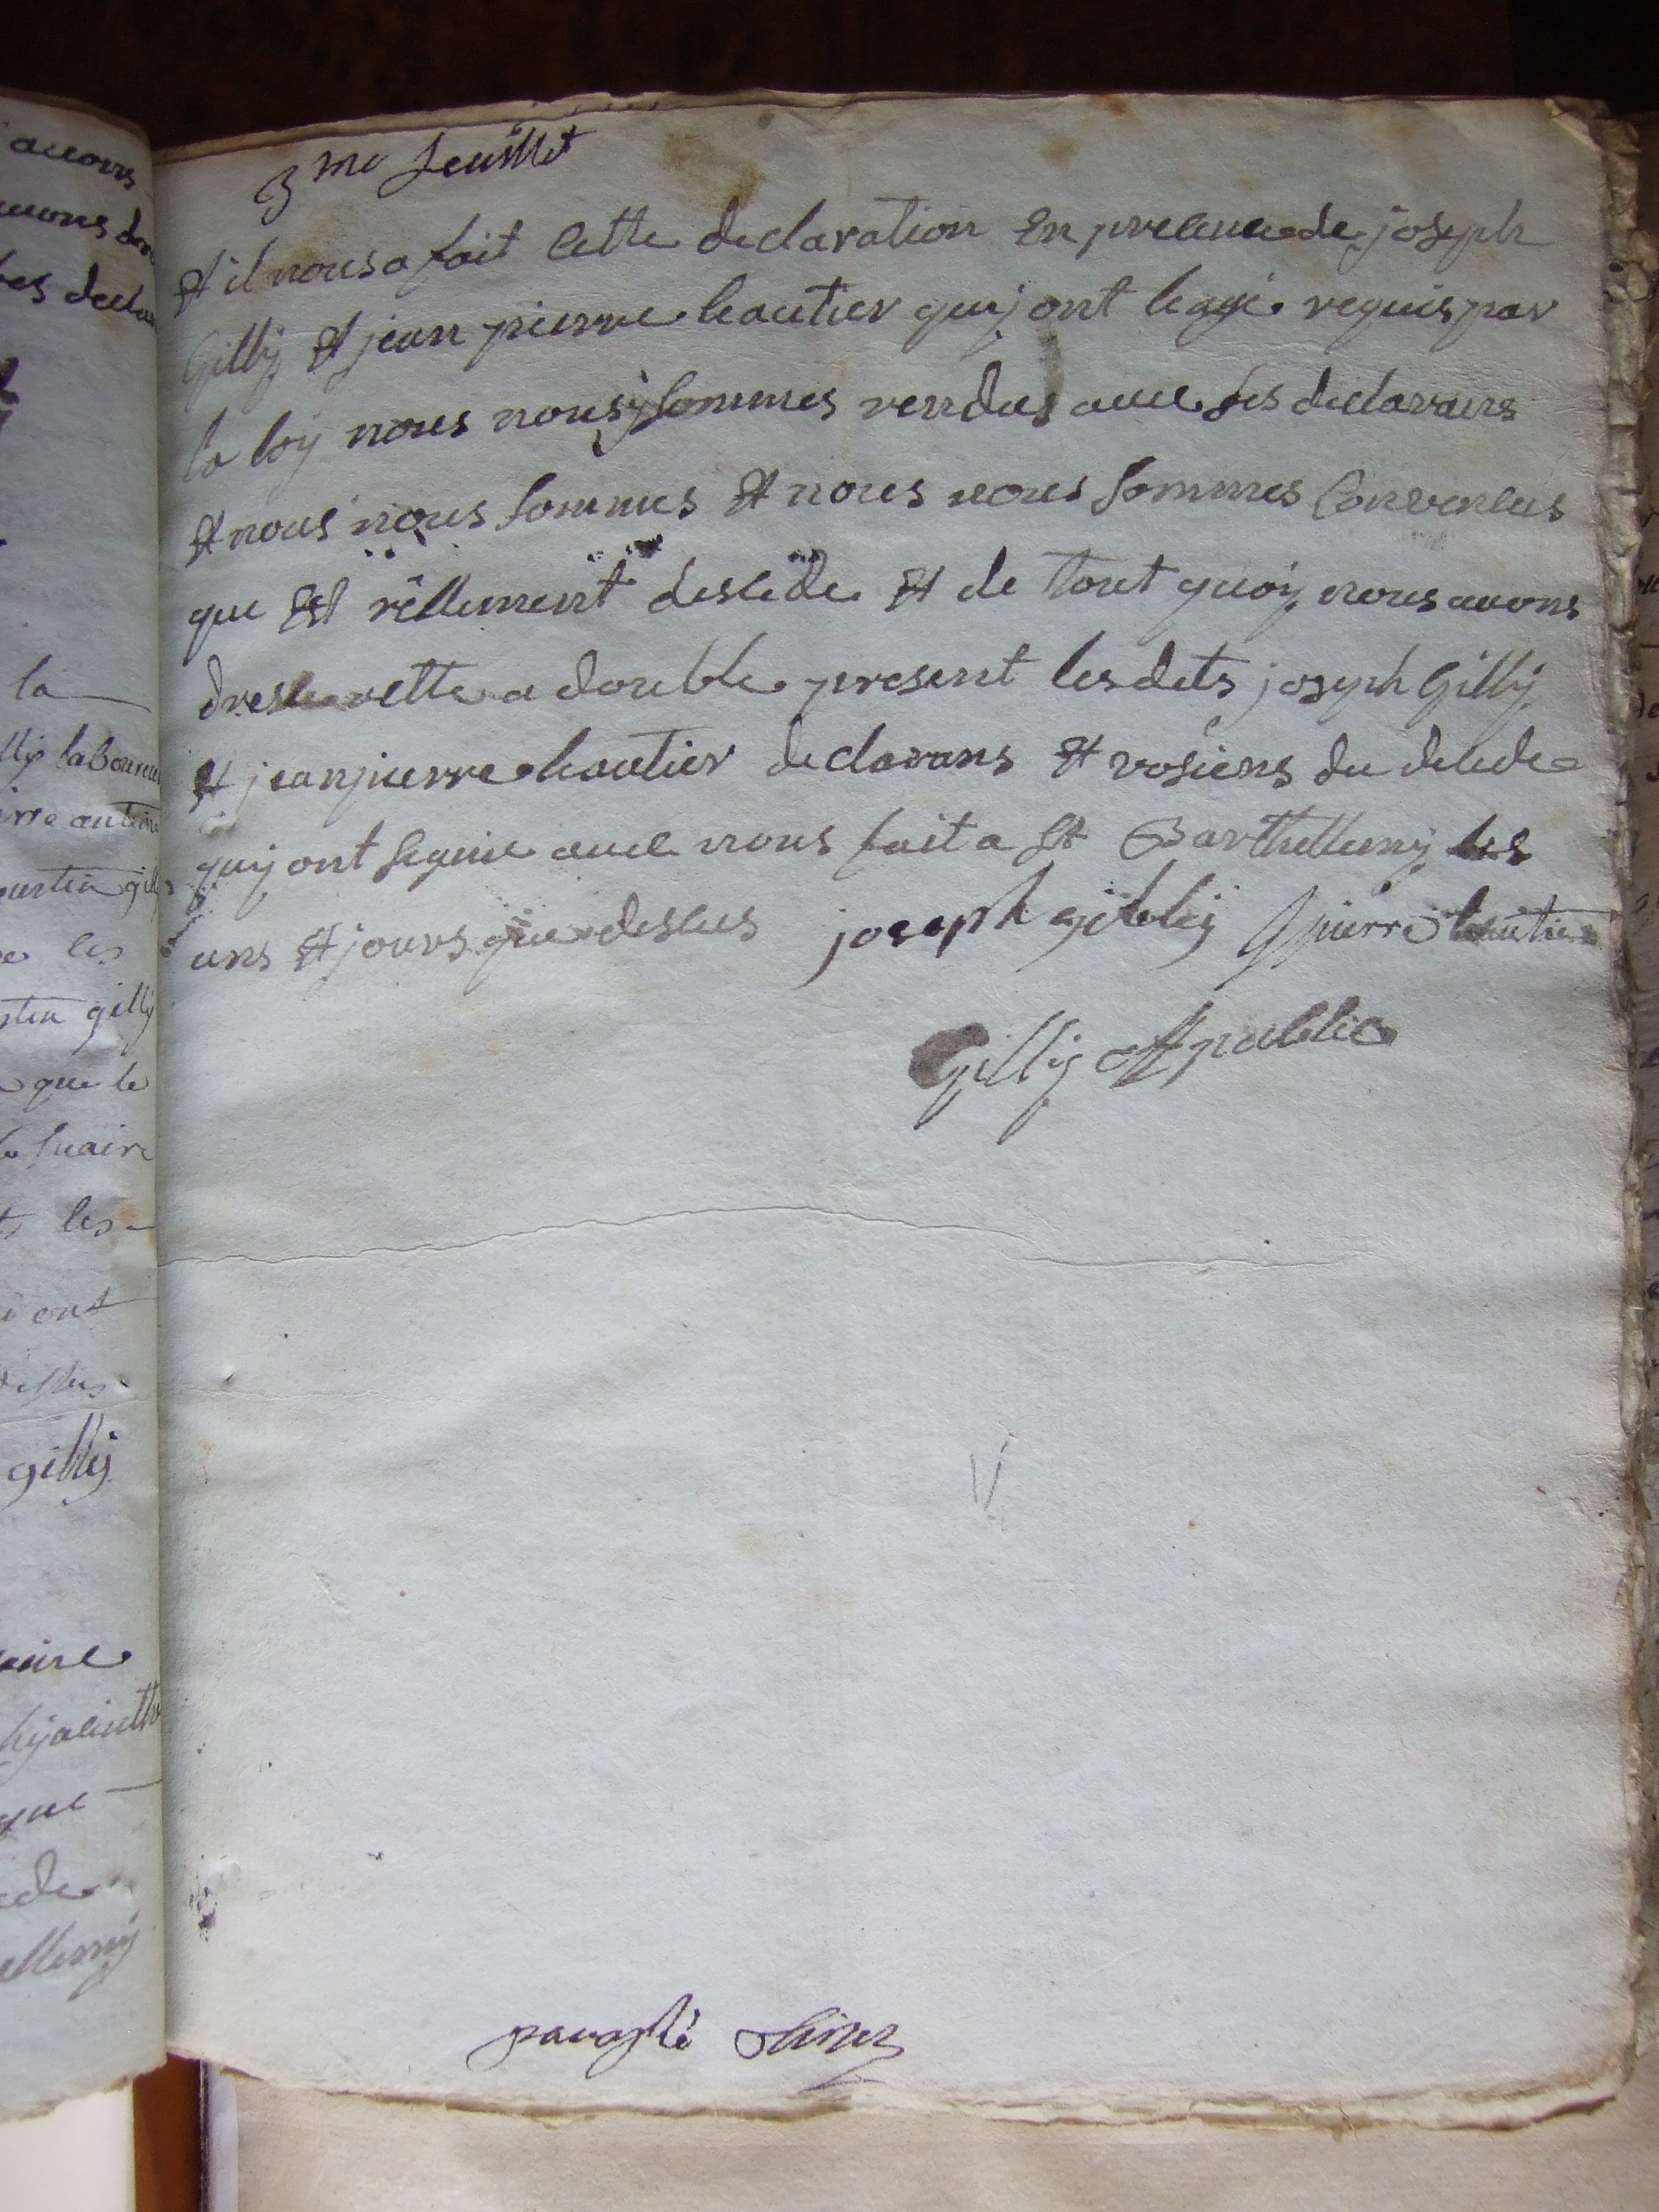 3me feuillet
Et il nous a fait cette declaration En presence de joseph
Gilly Et jean pierre hautier quy ont legge requis par
la loy nous nous y sommes rendus avec les declarans
Et nous nous sommes Et nous nous sommes Convencus
que Est rellement descede Et de tout quoy nous avons
dresse cette a double present les dets joseph Gilly
Et jean pierre hautier declarans Et vosiens du decede
quy ont segnie avec nous fait a St Barthellemy les
ans Et jours que dessus joseph gilly J pierre hautier
Gilly off public
paraphé
accors
avons dre
les declar
la
lly laboureur
ierre antoine
gustin gilly
les
stin gilly
que le
maire
les
ont
dessus
gilly
maire
hyacinthe
que
cede
ellemy